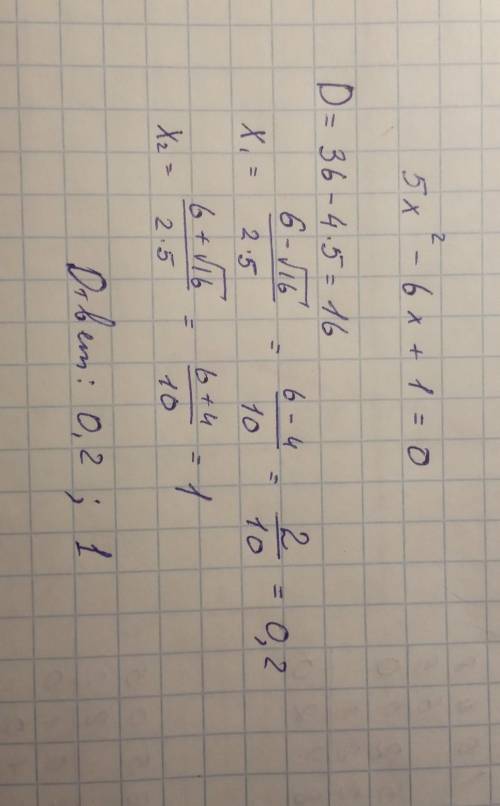 5x² - 6x + 1 = 0
D = 36 - 4·5 = 16
x₁ = (6 - √16)/(2·5) = (6 - 4)/10 = 2/10 = 0,2
x₂ = (6 + √16)/(2·5) = (6 + 4)/10 = 1
Ответ: 0,2 ; 1